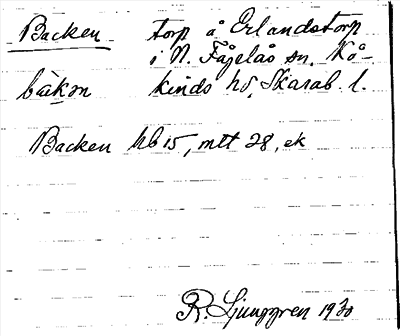 Backen torp å Erlandstorp
i N. Fågelås sn. Kå-
bàkǝn kinds hd, Skarab. l.
Backen hb 15, mtt 28, ek
R. Ljunggren 1930